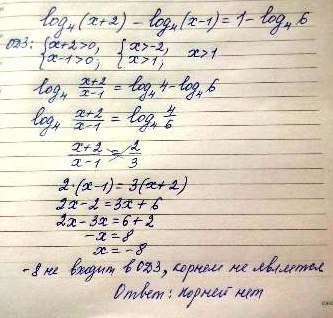 log₄(x+2) - log₄(x-1) = 1 - log₄ 6
ОДЗ: {x+2>0, {x>-2, x>1
{x-1>0; {x>1,
log₄ (x+2)/(x-1) = log₄4 - log₄6
log₄ (x+2)/(x-1) = log₄ 4/6
(x+2)/(x-1) = 2/3
2·(x-1) = 3(x+2)
2x-2 = 3x+6
2x-3x = 6+2
-x = 8
x = -8
-8 не входит в ОДЗ, корнем не является
Ответ: корней нет